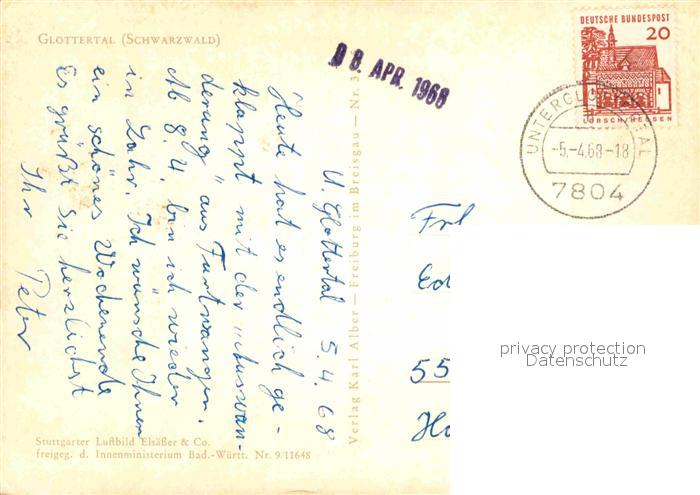 GLOTTERTAL (SCHWARZWALD)
08. APR. 1968
DEUTSCHE BUNDESPOST
20
LORSCH/HESSEN
UNTERGLOTTERTAL
-5.-4.68-18
7804
U. Glottertal 5.4.68
Heute hat es endlich ge-
klappt mit der „Auswan-
derung" aus Furtwangen.
Ab 8.4. bin ich wieder
in Lahr. Ich wünsche Ihnen
ein schönes Wochenende
Es grüßt Sie herzlichst
Ihr Peter
Verlag Karl Alber — Freiburg im Breisgau — Nr.
Frl
Ed
55
privacy protection
Datenschutz
Stuttgarter Luftbild Elsäßer & Co.
freigeg. d. Innenministerium Bad.-Württ. Nr. 9/11648